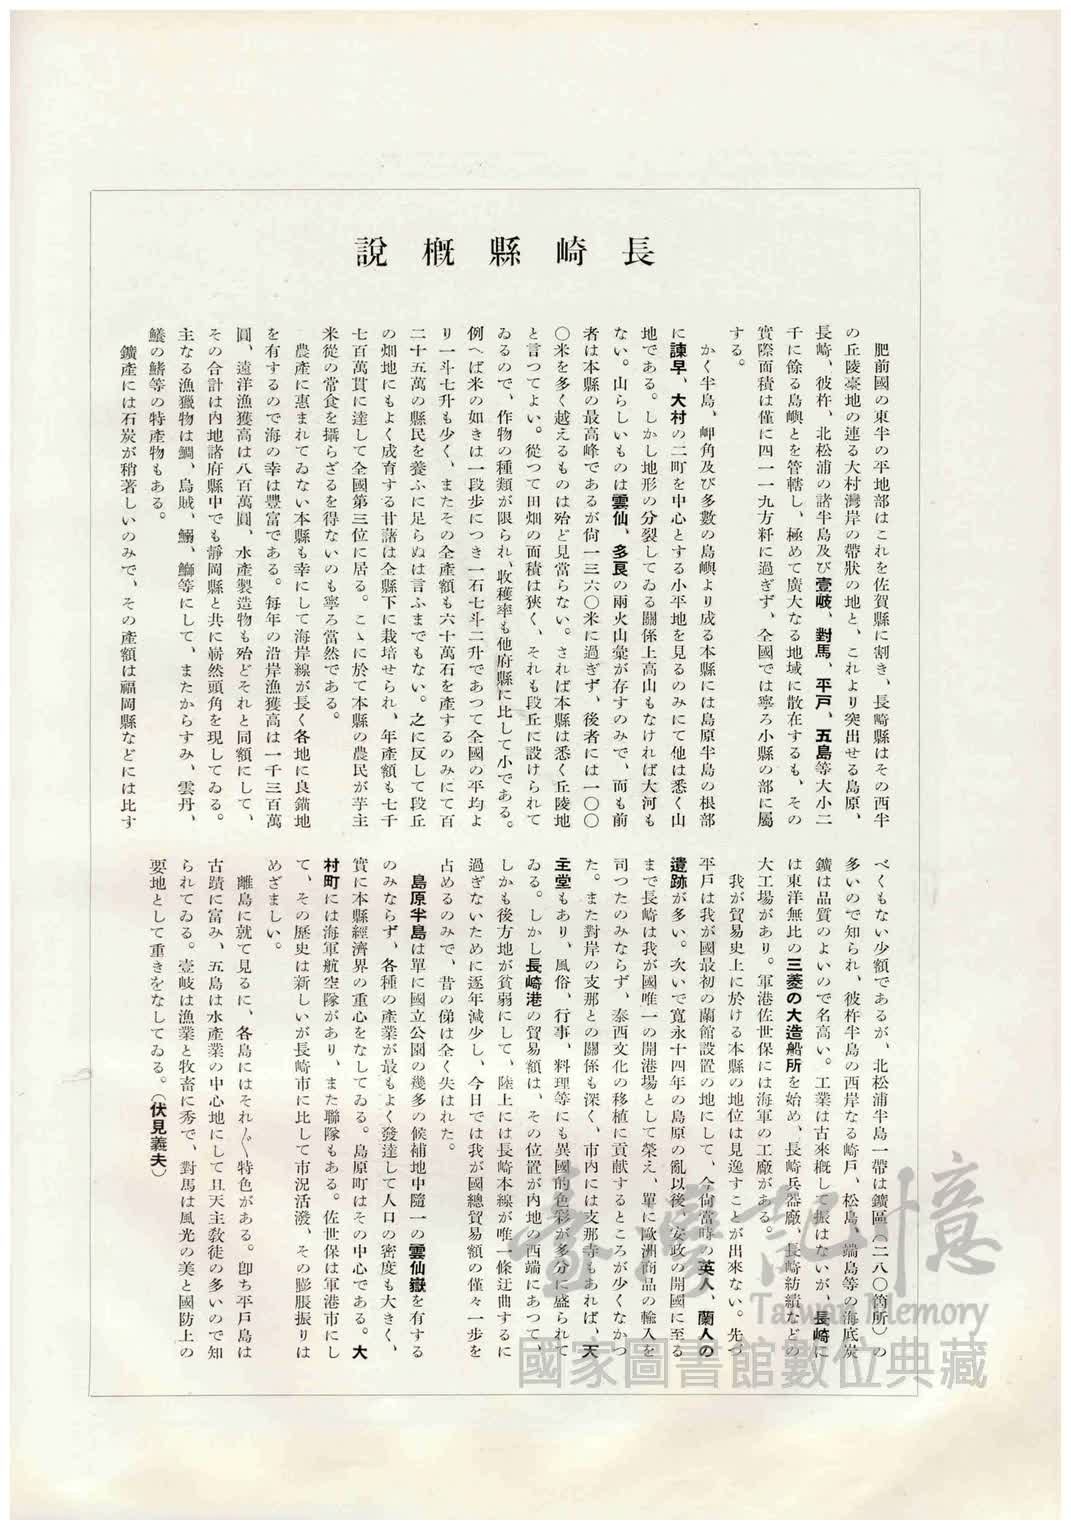 長崎縣概說
肥前國の東半の平地部はこれを佐賀縣に割き、長崎縣はその西半
の丘陵臺地の連る大村灣岸の帶狀の地と、これより突出せる島原、
長崎、彼杵、北松浦の諸半島及び壹岐、對馬、平戶、五島等大小二
千に餘る島嶼とを管轄し、極めて廣大なる地域に散在するも、その
實際面積は僅に四一一九方粁に過ぎず、全國では寧ろ小縣の部に屬
する。
かく半島、岬角及び多數の島嶼より成る本縣には島原半島の根部
に諫早、大村の二町を中心とする小平地を見るのみにて他は悉く山
地である。しかし地形の分裂してゐる關係上高山もなければ大河も
ない。山らしいものは雲仙、多良の兩火山彙が存すのみで、而も前
者は本縣の最高峰であるが尙一三六〇米に過ぎず、後者には一〇〇
〇米を多く越えるものは殆ど見當らない。されば本縣は悉く丘陵地
と言つてよい。從つて田畑の面積は狹く、それも段丘に設けられて
ゐるので、作物の種類が限られ、收穫率も他府縣に比して小である。
例へば米の如きは一段步につき一石七斗二升であつて全國の平均よ
り一斗七升も少く、またその全產額も六十萬石を產するのみにて百
二十五萬の縣民を養ふに足らぬは言ふまでもない。之に反して段丘
の畑地にもよく成育する甘藷は全縣下に栽培せられ、年產額も七千
七百萬貫に達して全國第三位に居る。こゝに於て本縣の農民が芋主
米從の常食を攝らざるを得ないのも寧ろ當然である。
農產に惠まれてゐない本縣も幸にして海岸線が長く各地に良錨地
を有するので海の幸は豐富である。每年の沿岸漁獲高は一千三百萬
圓、遠洋漁獲高は八百萬圓、水產製造物も殆どそれと同額にして、
その合計は內地諸府縣中でも靜岡縣と共に嶄然頭角を現してゐる。
主なる漁獵物は鯛、烏賊、鰯、鰤等にして、またからすみ、雲丹、
鱶の鰭等の特產物もある。
鑛產には石炭が稍著しいのみで、その產額は福岡縣などには比す
べくもない少額であるが、北松浦半島一帶は鑛區(二八〇箇所)の
多いので知られ、彼杵半島の西岸なる崎戶、松島、端島等の海底炭
鑛は品質のよいので名高い。工業は古來槪して振はないが、長崎に
は東洋無比の三菱の大造船所を始め、長崎兵器廠、長崎紡績などの
大工場があり。軍港佐世保には海軍の工廠がある。
我が貿易史上に於ける本縣の地位は見逸すことが出來ない。先づ
平戶は我が國最初の蘭館設置の地にして、今尙當時の英人、蘭人の
遺跡が多い。次いで寬永十四年の島原の亂以後、安政の開國に至る
まで長崎は我が國唯一の開港場として榮え、單に歐洲商品の輸入を
司つたのみならず、泰西文化の移植に貢獻するところが少くなかつ
た。また對岸の支那との關係も深く、市內には支那寺もあれば、天
主堂もあり、風俗、行事、料理等にも異國的色彩が多分に盛られて
ゐる。しかし長崎港の貿易額は、その位置が內地の西端にあつて、
しかも後方地が貧弱にして、陸上には長崎本線が唯一條迂曲するに
過ぎないために逐年減少し、今日では我が國總貿易額の僅々一步を
占めるのみで、昔の俤は全く失はれた。
島原半島は單に國立公園の幾多の候補地中隨一の雲仙嶽を有する
のみならず、各種の產業が最もよく發達して人口の密度も大きく、
實に本縣經濟界の重心をなしてゐる。島原町はその中心である。大
村町には海軍航空隊があり、また聯隊もある。佐世保は軍港市にし
て、その歷史は新しいが長崎市に比して市況活潑、その膨脹振りは
めざましい。
離島に就て見るに、各島にはそれ〴〵特色がある。卽ち平戶島は
古蹟に富み、五島は水產業の中心地にして且天主敎徒の多いので知
られてゐる。壹岐は漁業と牧畜に秀で、對馬は風光の美と國防上の
要地として重きをなしてゐる。(伏見義夫)
臺灣記憶
Taiwan Memory
國家圖書館數位典藏